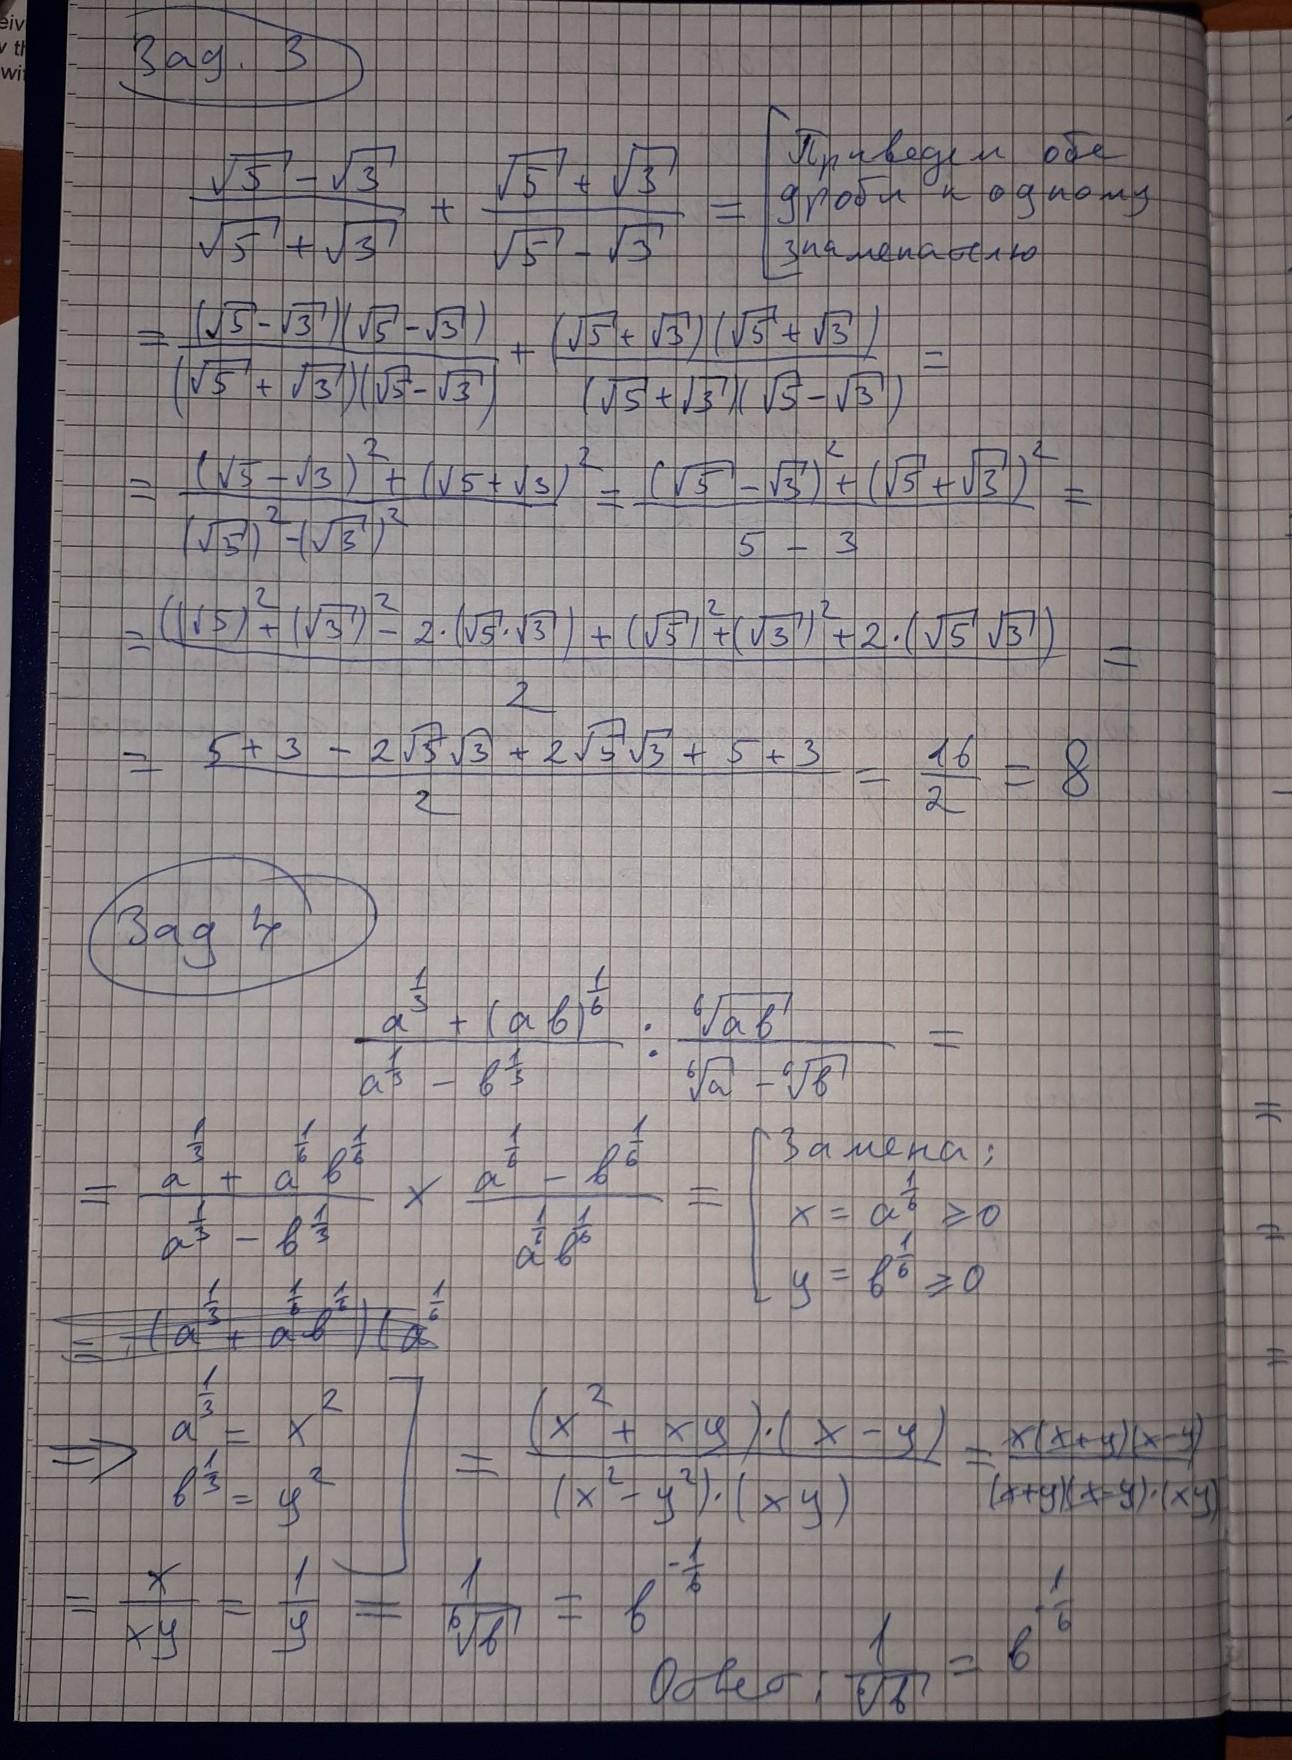 Зад. 3
(√5 - √3)/(√5 + √3) + (√5 + √3)/(√5 - √3) = [Приведем обе
дроби к одному
знаменателю
= (√5 - √3)(√5 - √3)/(√5 + √3)(√5 - √3) + (√5 + √3)(√5 + √3)/(√5 + √3)(√5 - √3) =
= ((√5 - √3)² + (√5 + √3)²)/((√5)² - (√3)²) = ((√5 - √3)² + (√5 + √3)²)/(5 - 3) =
= ((√5)² + (√3)² - 2·(√5·√3) + (√5)² + (√3)² + 2·(√5 √3))/2 =
= (5 + 3 - 2√5√3 + 2√5√3 + 5 + 3)/2 = 16/2 = 8
Зад 4
(a^(1/3) + (ab)^(1/6))/(a^(1/3) - b^(1/3)) : ⁶√(ab)/(⁶√a - ⁶√b) =
= (a^(1/3) + a^(1/6) b^(1/6))/(a^(1/3) - b^(1/3)) × (a^(1/6) - b^(1/6))/(a^(1/6) b^(1/6)) = [Замена:
x = a^(1/6) ≥ 0
y = b^(1/6) ≥ 0
= (a^(1/3) + a^(1/6) b^(1/6))(a^(1/6)
⇒ a^(1/3) = x²
b^(1/3) = y² ] = (x² + xy)·(x - y)/(x² - y²)·(xy) = x(x+y)(x-y)/(x+y)(x-y)·(xy)
= x/xy = 1/y = 1/⁶√b = b^(-1/6)
Ответ: 1/⁶√b = b^(-1/6)